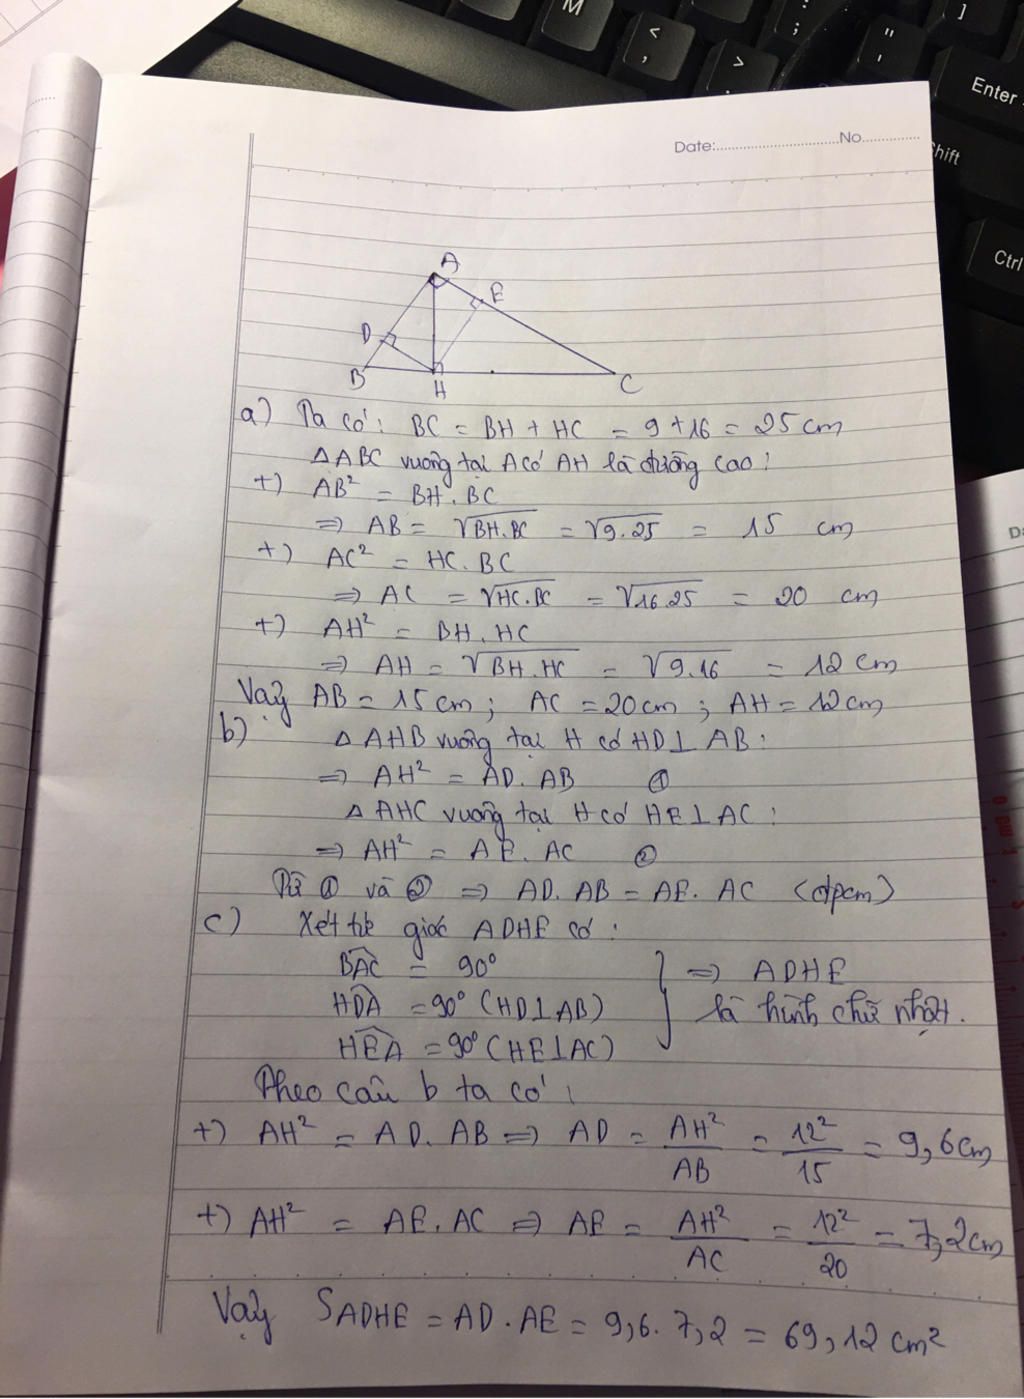 M
<
,
>
.
:
;
"
'
]
Enter
Shift
Ctrl
Date:...............................No..............
A
E
D
B
H
C
a) Ta có: BC = BH + HC = 9 + 16 = 25 cm
△ABC vuông tại A có AH là đường cao:
+) AB² = BH.BC
=> AB = √BH.BC = √9.25 = 15 cm
+) AC² = HC.BC
=> AC = √HC.BC = √16.25 = 20 cm
+) AH² = BH.HC
=> AH = √BH.HC = √9.16 = 12 cm
Vậy AB = 15cm; AC = 20cm; AH = 12cm
b) △AHB vuông tại H có HD⊥AB:
=> AH² = AD.AB ①
△AHC vuông tại H có HE⊥AC:
=> AH² = AE.AC ②
Từ ① và ② => AD.AB = AE.AC (đpcm)
c) Xét tứ giác ADHE có:
BAC = 90°
HDA = 90° (HD⊥AB)
HEA = 90° (HE⊥AC)
=> ADHE
là hình chữ nhật.
Theo câu b ta có:
+) AH² = AD.AB => AD = AH²/AB = 12²/15 = 9,6cm
+) AH² = AE.AC => AE = AH²/AC = 12²/20 = 7,2cm
Vậy SADHE = AD.AE = 9,6.7,2 = 69,12 cm²